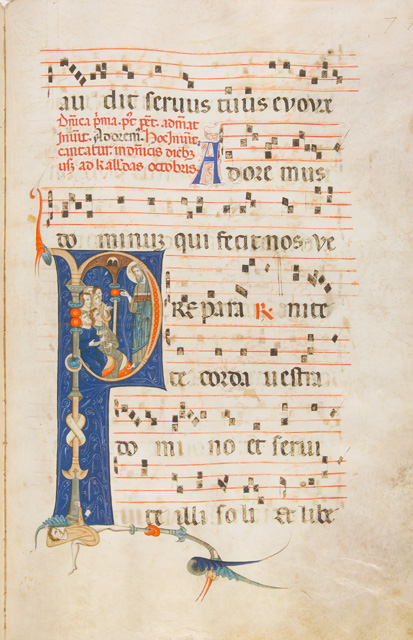 au dit seruus tuus evovae
Dñica p̄ma. p̃t p̃t. ad mat
Inuit. Adorem. Hoc inuit.
cantatur. in dñicis dieb;
usq; ad kallēdas octobris
Adore mus
do minuz qui fecit nos. ve
PRepara ℟ nite
te corda uestra
do mi no et serui
te illi so li Et libe